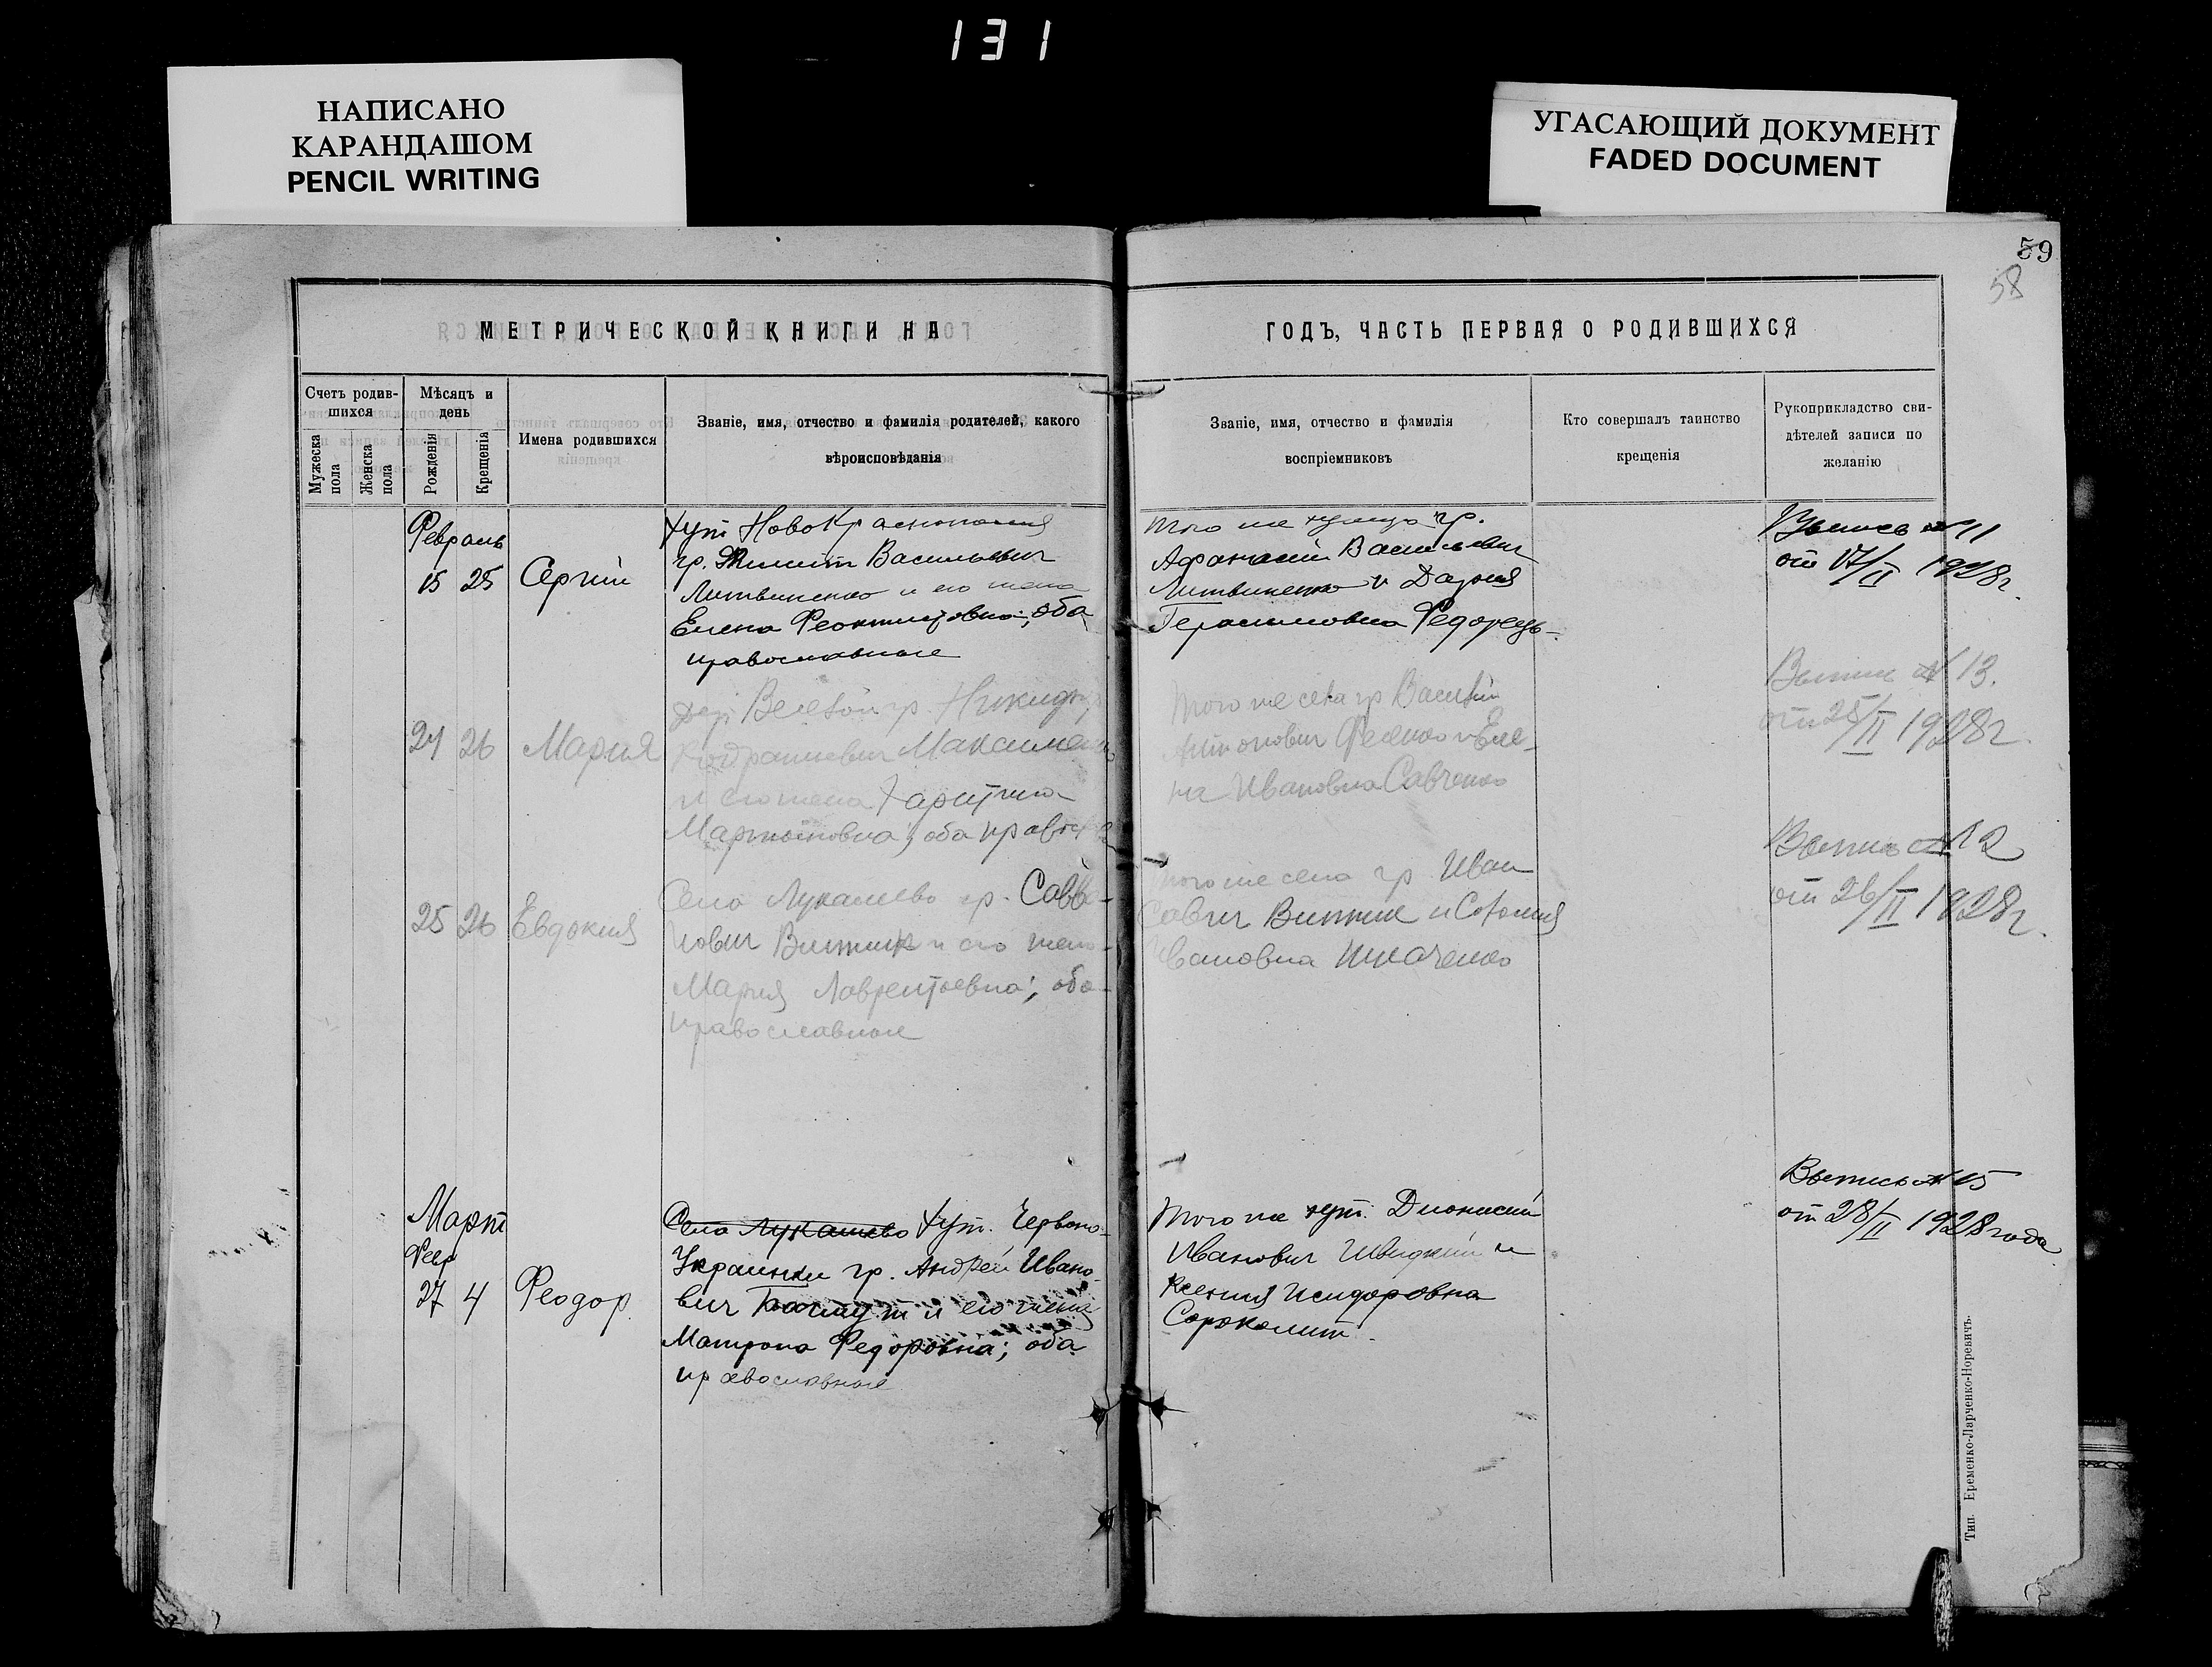 131
НАПИСАНО
КАРАНДАШОМ
PENCIL WRITING
УГАСАЮЩИЙ ДОКУМЕНТ
FADED DOCUMENT
59
58
МЕТРИЧЕСКОЙ КНИГИ НА
Счетъ родив-
шихся
Мужеска
пола
Женска
пола
Мѣсяцъ и
день
Рожденія
Крещенія
Имена родившихся
Званіе, имя, отчество и фамилія родителей, какого
вѣроисповѣданія
Февраль
15 25 Сергий
хут Ново Краснополия
гр. Васильевич
Литвиненко и его жена
Елена Феоктистовна; оба
православные
24 26 Мария
гр. Никида
Кодратиевич Максимен
и его жена Харитина
Мартыновна; оба правос
25 26 Евдокия
Село Лукашево гр. Савва
Витник и его жена
Мария Лаврентьевна; оба
православные
Март
Февр
27 4 Феодор.
Село Лукашево хут. Червоно-
Украинки гр. Андрей Ивано-
вич и его жена
Матрона Федоровна; оба
православные
ГОДЪ, ЧАСТЬ ПЕРВАЯ О РОДИВШИХСЯ
Званіе, имя, отчество и фамилія
воспріемниковъ
Кто совершалъ таинство
крещенія
Рукоприкладство сви-
дѣтелей записи по
желанію
того же хутора гр.
Афанасий Васильевич
Литвиненко и Дария
Герасимовна Федорець
Выпись № 11
от 17/II 1928г.
того же села гр Василий
Антонович и Еле-
на Ивановна Савченко
Выпись № 13.
от 25/II 1928г.
того же села гр Иван
Саввич Витник и София
Ивановна Ткаченко
Выпись № 12
от 26/II 1928г.
того же хут. Дионисий
Иванович Швидкий и
Ксения Исидоровна
Сороколит.
Выпись № 15
от 28/II 1928 года
Тип. Еременко-Ларченко-Норевичъ.